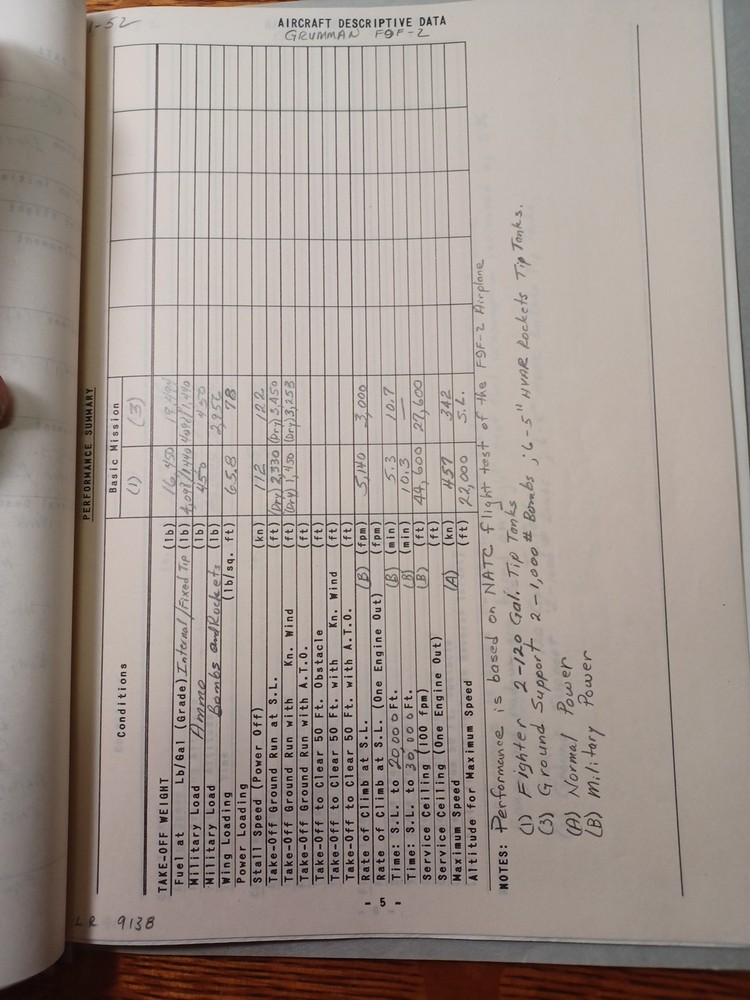 1-52
AIRCRAFT DESCRIPTIVE DATA
GRUMMAN F9F-2
PERFORMANCE SUMMARY
Conditions Basic Mission
(1) (3)
TAKE-OFF WEIGHT (lb) 16,450 19,494
Fuel at Lb/Gal (Grade) Internal/Fixed Tip (lb) 4,098/1440 4098/1440
Military Load Ammo (lb) 450 450
Military Load Bombs and Rockets (lb) 2,956
Wing Loading (lb/sq. ft) 65.8 78
Power Loading
Stall Speed (Power Off) (kn) 112 122
Take-Off Ground Run at S.L. (ft) (Dry) 2,330 (Dry) 3,450
Take-Off Ground Run with Kn. Wind (ft) (Dry) 1,430 (Dry) 3,253
Take-Off Ground Run with A.T.O. (ft)
Take-Off to Clear 50 Ft. Obstacle (ft)
Take-Off to Clear 50 Ft. with Kn. Wind (ft)
Take-Off to Clear 50 Ft. with A.T.O. (ft)
Rate of Climb at S.L. (B) (fpm) 5,140 3,000
Rate of Climb at S.L. (One Engine Out) (fpm)
Time: S.L. to 20,000 Ft. (B) (min) 5.3 10.7
Time: S.L. to 30,000 Ft. (B) (min) 10.3 —
Service Ceiling (100 fpm) (B) (ft) 44,600 27,600
Service Ceiling (One Engine Out) (ft)
Maximum Speed (A) (kn) 457 342
Altitude for Maximum Speed (ft) 22,000 S.L.
NOTES: Performance is based on NATC flight test of the F9F-2 Airplane
(1) Fighter 2-120 Gal. Tip Tanks
(3) Ground Support 2-1,000 # Bombs ; 6-5" HVAR Rockets Tip Tanks.
(A) Normal Power
(B) Military Power
- 5 -
LR 9138